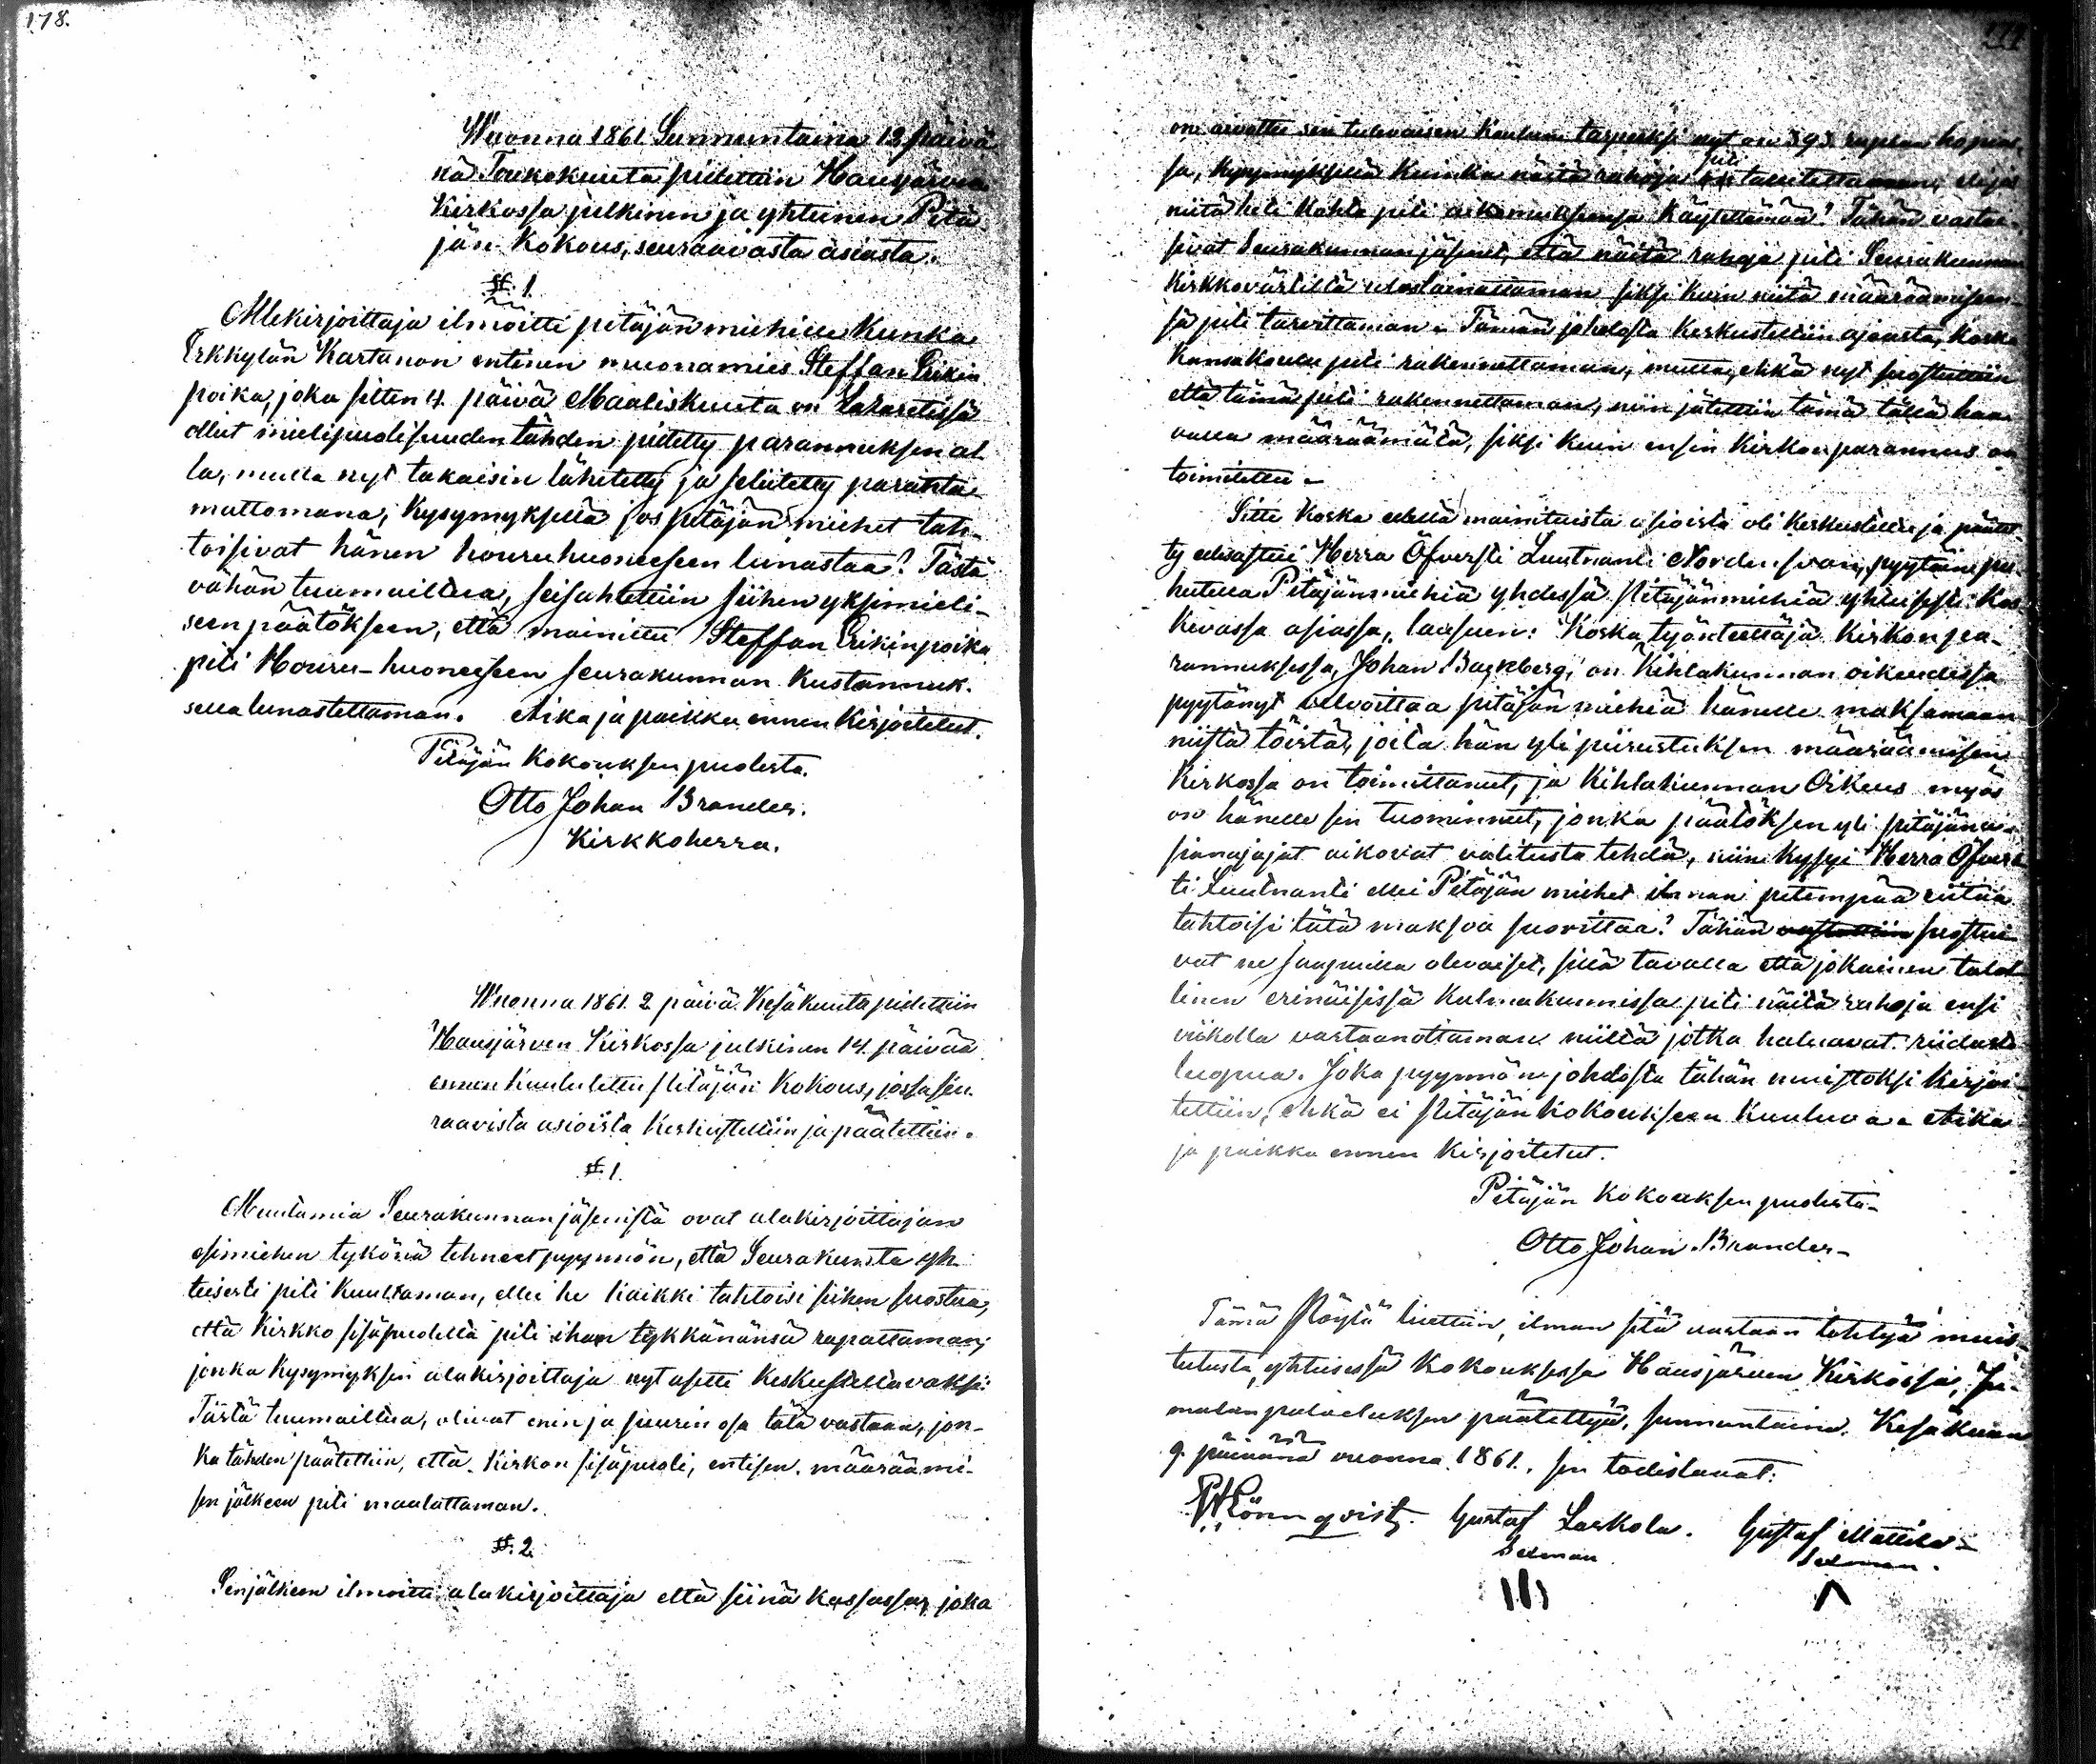 178.
Wuonna 1861 Sunnuntaina 12 päivä
nä Toukokuuta pidettiin Hausjärven
Kirkossa julkinen ja yhteinen Pitä
jän Kokous, seuraavasta asiasta.
§. 1.
Allekirjoittaja ilmoitti pitäjän miehille kunka
Erkkylän Kartanon entinen muonamies Steffan Erikin
poika, joka sitten 4. päivä Maaliskuuta on Lazaretissä
ollut mielipuolisuuden tähden pidetty parannuksen al
la, mutta nyt takaisin lähetetty ja selitetty paranta
mattomana, Kysymyksellä jos pitäjän miehet tah-
toisivat hänen houruhuoneeseen lunastaa? Tästä
vähän tuumailtua, seisahtettiin siihen yksimieli-
seen päätökseen, että mainittu Steffan Erikinpoika
piti Houru-huoneeseen seurakunnan kustannuk.
sella lunastettaman. Aika ja paikka ennen Kirjoitetut.
Pitäjän Kokouksen puolesta.
Otto Johan Brander.
Kirkkoherra.
Wuonna 1861. 2 päivä Kesäkuuta pidettiin
Hausjärven Kirkossa julkinen 14. päivää
ennen kuulutettu Pitäjän Kokous, jossa seu.
raavista asioista Keskusteltiin ja päätettiin.
§. 1.
Muutamia Seurakunnan jäsenistä ovat alakirjoittajan
esimiehen tykönä tehneet pyynnön, että Seurakunta yh-
teisesti piti Kuultaman, ellei he kaikki tahtoisi siihen suostua,
että Kirkko sisäpuolelta piti ihan tykkänänsä rapattaman;
jonka Kysymyksen alakirjoittaja nyt asetti Keskusteltavaksi:
Tästä tuumailtua, olivat enin ja suurin osa tätä vastaan, jon-
ka tähden päätettiin, että Kirkon sisäpuoli, entisen määräämi-
sen jälkeen piti maalattaman.
§. 2.
Senjälkeen ilmoitti alakirjoittaja että siinä kassassa, joka
on aivottu sen tulevaisen Koulun tarpeeksi nyt on 393 ruplaa hopias
sa, Kysymyksellä Kuinka näitä rahoja piti talletettaman, elijä
niitä heti kohta piti aikomuksensa Käytettämän? Tähän vastai-
sivat Seurakunnan jäsenet, että näitä rahoja piti Seurakunnan
Kirkkovärtiltä uloslainattaman siksi kuin niitä määräämiseen-
sä piti tarvittaman. Tämän johdosta Keskusteltiin ajasta, koska
Kansakoulu piti rakennettaman, mutta, ehkä nyt suostuttiin
että tämä piti rakennettaman, niin jätettiin tämä tällä haa
valla määräämätä, siksi kuin ensin Kirkon parannus on
toimitettu.
Sitte Koska edellä mainituista asioista oli Keskusteltu ja päätet
ty edusastui Herra Öfversti Luutnanti Nordensvan, pyytäin pu
hutella Pitäjänmiehiä yhdessä Pitäjänmiehiä yhteisesti kos
kevassa asiassa, lausuen: Koska työnteettäjä Kirkon pa-
rannuksessa, Johan Backberg, on Kihlakunnan oikeudessa
pyytänyt velvoittaa pitäjän miehiä hänelle maksamaan
niistä töistä, joita hän yli piirustuksen määräämisen
Kirkossa on toimittanut, ja Kihlakunnan Oikeus myös
on hänelle sen tuominnut, jonka päätöksen yli pitäjän a-
sianajajat aikovat valitusta tehdä, niin kysyi Herra Öfvers
ti Luutnanti ellei Pitäjän miehet ilman pitempää riitaa
tahtoisi tätä maksoa suorittaa? Tähän vastattiin suostui
vat ne saapuilla olevaiset, sillä tavalla että jokainen talol
linen erinäisissä kulmakunnissa piti näitä rahoja ensi
viikolla vastaanottaman niiltä jotka haluavat riidasta
luopua. Joka pyynnön johdosta tähän muistoksi Kirjoi-
tettiin, ehkä ei Pitäjän Kokoukseen Kuuluva. Aika
ja paikka ennen Kirjoitetut.
Pitäjän Kokouksen puolesta
Otto Johan Brander
Tämä Pöytä luettiin, ilman sitä vastaan tehtyä muis-
tutusta, yhteisessä Kokouksessa Hausjärven Kirkossa, Ju-
malan palveluksen päätettyä, sunnuntaina Kesäkuun
9. päivänä vuonna 1861., sen todistavat:
Lönnqvist. Gustaf Laskola. Gustaf Mattila
Sexman. Sexman.